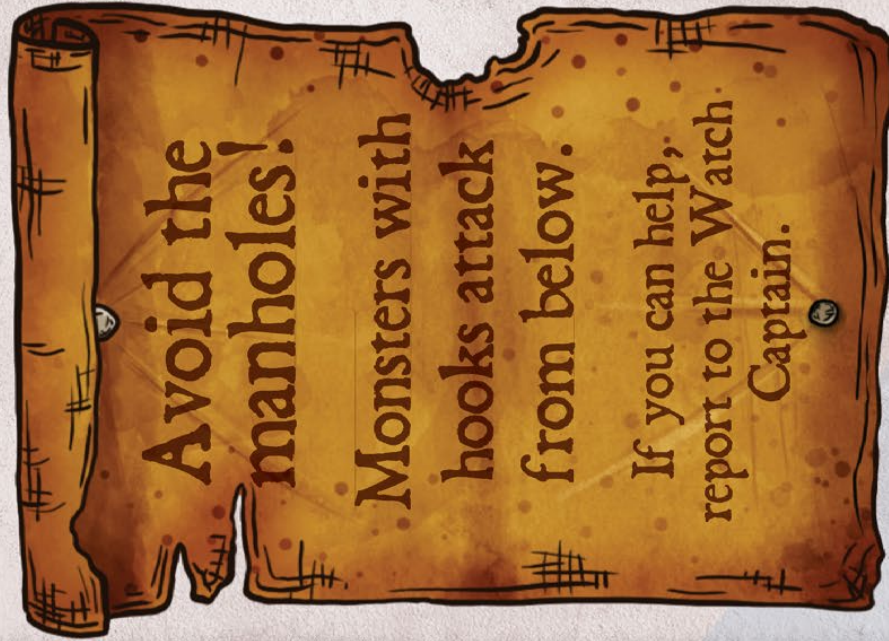 Avoid the
manholes!
Monsters with
hooks attack
from below.
If you can help,
report to the Watch
Captain.